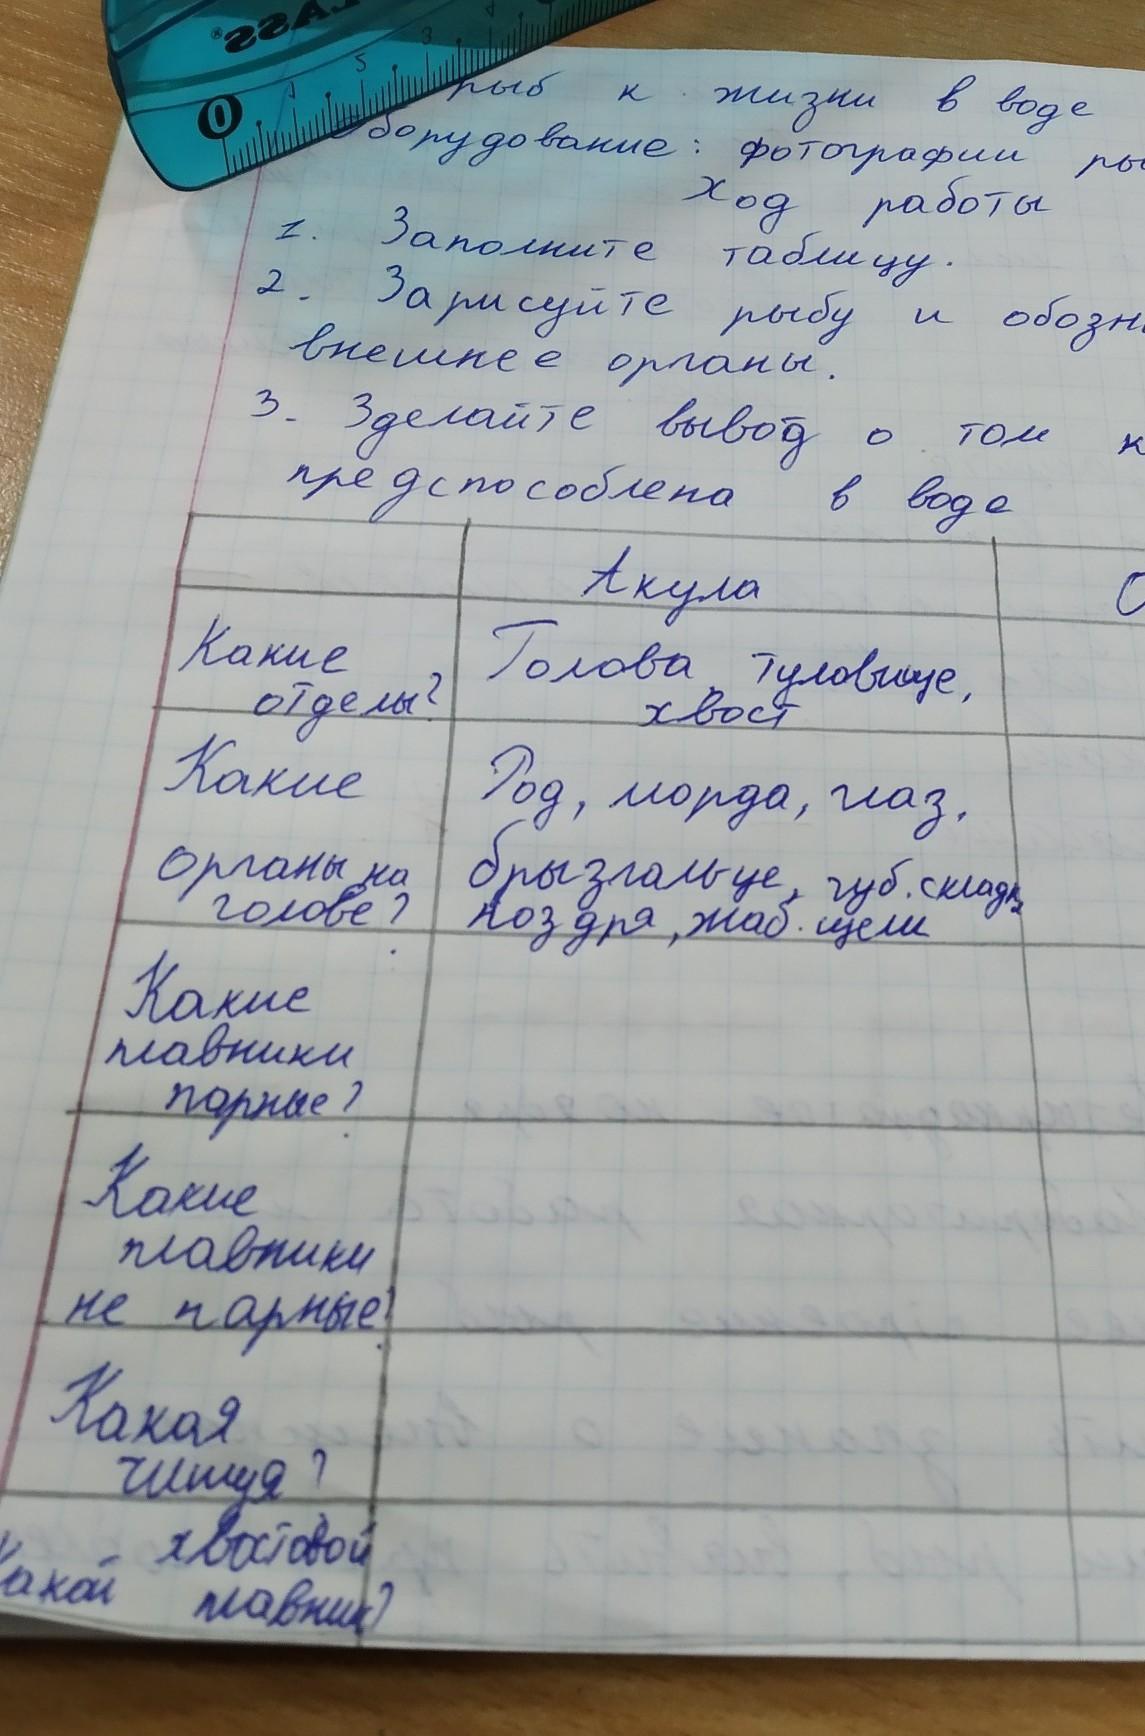 рыб к жизни в воде
Оборудование: фотографии ры
Ход работы
1. Заполните таблицу.
2. Зарисуйте рыбу и обозн
внешнее органы.
3. Зделайте вывод о том к
предспособлена в воде
Акула
Какие
отделы?
Голова, туловище,
хвост
Какие
органы на
голове?
Род, морда, глаз,
брызгальце, губ. складк,
ноздря, жаб. щели
Какие
плавники
парные?
Какие
плавники
не парные?
Какая
чишуя?
хвостовой
Какой плавник?
0 1 5 3 4